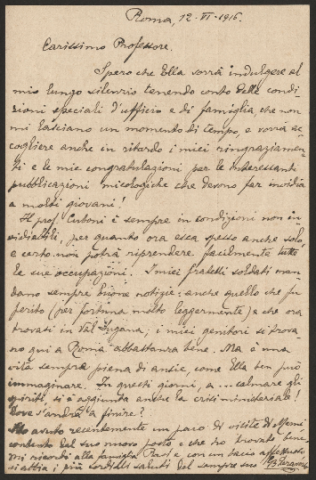 Roma, 12-VI-1916.
Carissimo Professore.
Spero che Ella vorrà indulgere al
mio lungo silenzio tenendo conto delle condi-
zioni speciali d'ufficio e di famiglia, che non
mi lasciano un momento di tempo, e vorrà ac-
cogliere anche in ritardo i miei ringraziamen-
ti e le mie congratulazioni per le interessanti
pubblicazioni micologiche che devono far invidia
a molti giovani!
Il prof. Cuboni è sempre in condizioni non in-
vidiabili, per quanto ora esca spesso anche solo,
e certo non potrà riprendere facilmente tutte
le sue occupazioni. I miei fratelli soldati man-
dano sempre buone notizie, anche quello che fu
ferito (per fortuna molto leggermente) e che ora
trovasi in Val Sugana; i miei genitori si trova-
no qui a Roma abbastanza bene. Ma è una
vita sempre piena di ansie, come Ella ben può
immaginare. In questi giorni, a ... calmare gli
spiriti, si è aggiunta anche la crisi ministeriale!
Dove s'andrà a finire?
Ho avuto recentemente un paio di visite di
contento del suo nuovo posto e che ho trovato bene.
Mi ricordi alla famiglia e con un bacio affettuoso
si abbia i più cordiali saluti dal sempre suo